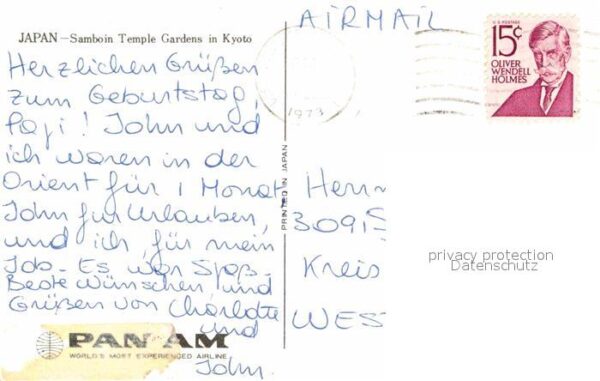 AIRMAIL
JAPAN — Samboin Temple Gardens in Kyoto
15¢
U.S. POSTAGE
OLIVER
WENDELL
HOLMES
1973
Herzlichen Grüßen
zum Geburtstag,
Papi! John und
ich waren in der
Orient für 1 Monat
John für Urlauben,
und ich, für mein
Job - Es war Spaß -
Beste Wünschen und
Grüßen von Charlotte
und
John.
PRINTED IN JAPAN
Herrn
3091
Kreis
WES
privacy protection
Datenschutz
PAN AM
WORLD'S MOST EXPERIENCED AIRLINE